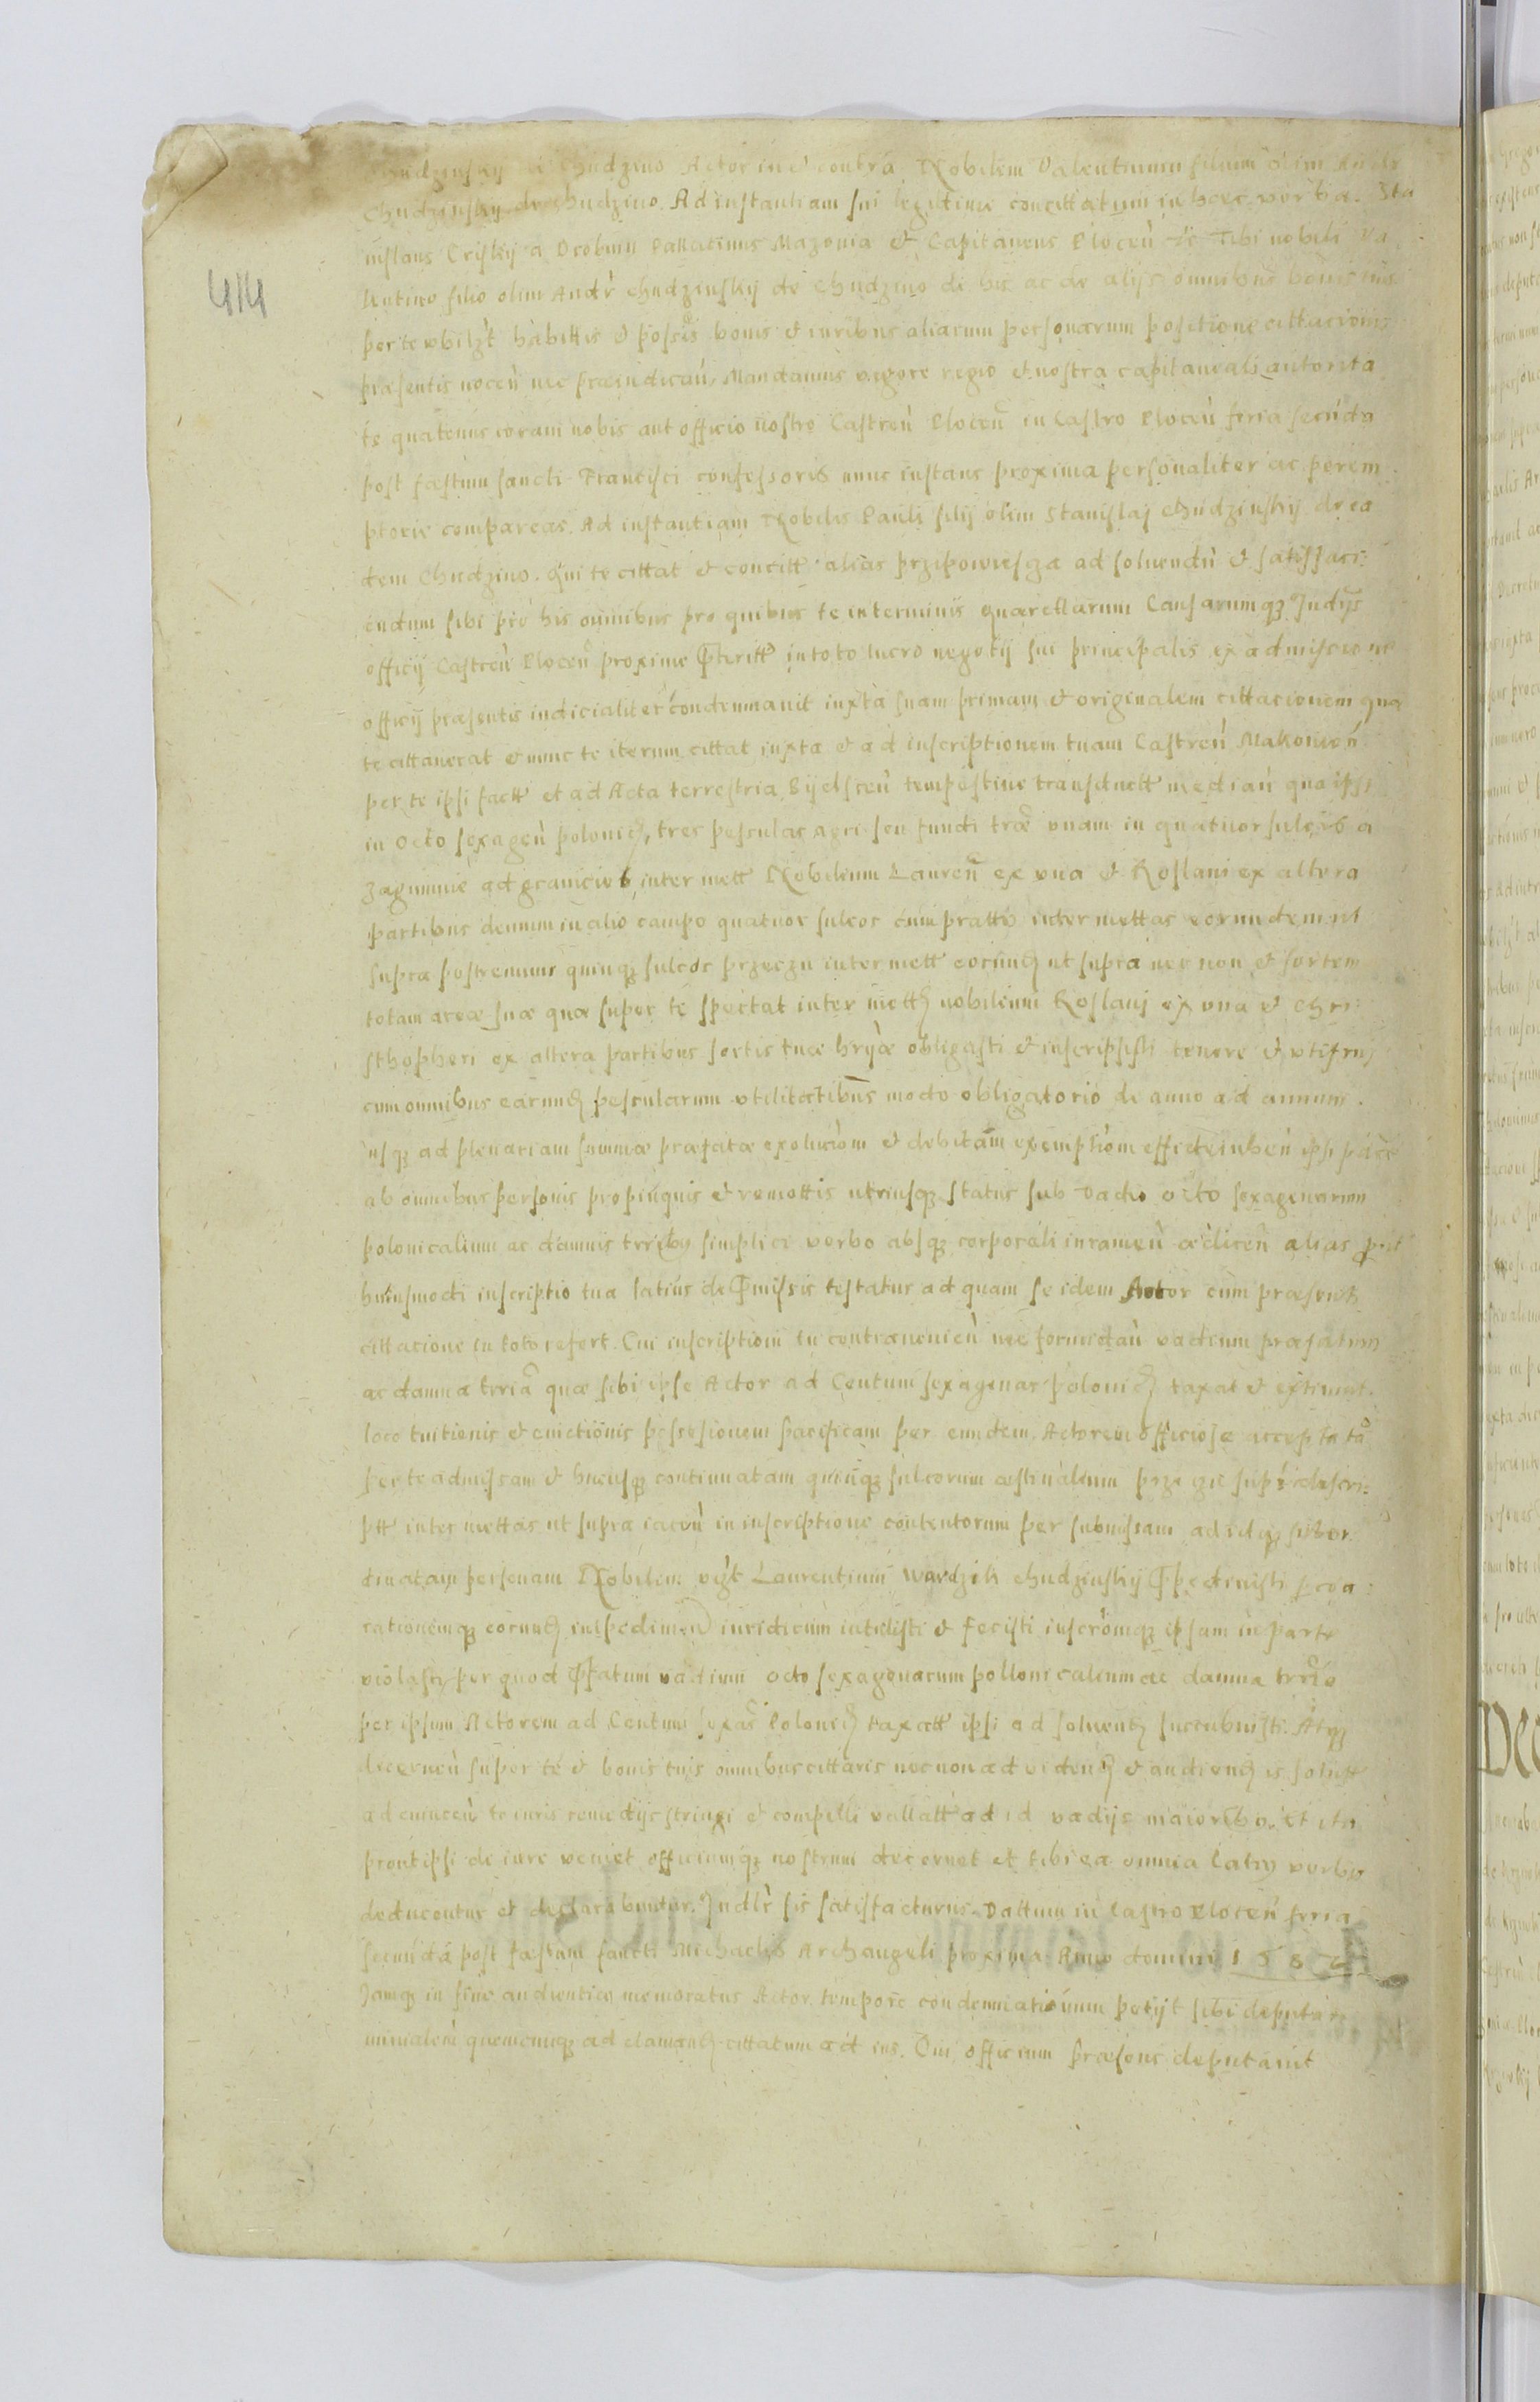 414
Chudzinskij de Chudzino Actor in et contra Nobilem Valentinum filium olim Andr
Chudzinskij de Chudzino. Ad instantiam sui legitime concittatum in haec verba. Sta
nislaus Criskij a Drobnin Pallatinus Mazoviæ et Capitaneus Plocen̄ &c Tibi nobili Va
lentino filio olim Andr̄ Chudzinskij de Chudzino de his ac de alijs omnibus bonis tuis
per te vbilz̄t habittis et possis bonis et iuribus aliarum personarum positione cittacionis
præsentis nocen̄ nec præiudican̄ Mandamus vigore regio et nostra capitaneali autorita
te quatenus coram nobis aut officio nostro Castren̄ Plocen̄ in Castro Plocen̄ feria secunda
post fæstum sancti Francisci confessoris nunc instans proxima personaliter ac perem
ptorie compareas. Ad instantiam Nobilis Pauli filij olim Stanislaj Chudzinskij de ea
dem Chudzino. Qui te cittat et concitt alias przipowiesza ad soluendū et satisfaci:
endum sibi pro his omnibus pro quibus te in terminis quærellarum Causarumqz Judijs
officij Castren̄ Plocen̄ proxime p̄teritt in toto lucro negotij sui principalis ex admissione
officij præsentis iudicialiter condemnauit iuxta suam primam et originalem cittacionem qua
te cittauerat et nunc te iterum cittat iuxta et ad inscriptionem tuam Castren̄ Makouien̄
per te ipsi factt et ad Acta terrestria Byelscen̄ tempestiue transductt median̄ qua ipsi
in Octo sexagen̄ polonic, tres pesculas agri seu fundi træ vnam in quatuor sulcis a
zagumnie ad granicies inter mett Nobilium Lauren̄ ex vna et Roslani ex altera
partibus demum in alio campo quatuor sulcos cum prattis inter mettas eorundem ut
supra postremum quinqz sulcos przeczu inter mett eorund ut supra nec non et sortem
totam areæ suæ quæ super te spectat inter mett nobilium Roslanj ex vna et Chri:
sthopheri ex altera partibus sortis tuæ hrijæ obligasti et inscripsisti tenere et vtifruj
cum omnibus earund pescularum vtilitatibus modo obligatorio de anno ad annum.
usqz ad plenariam summæ præfatæ exolucion̄ et debitam exemption̄
ab omnibus personis propinquis et remottis utriusqz status sub vadio octo sexagenarum
polonicalium ac damnis trribus simplici verbo absqz corporali iuramen̄ alias prout
huiusmodi inscriptio tua latius de p̄missis testatur ad quam se idem Actor cum præsenti
cittacione in toto refert. Cui inscriptioni tu contraueniēn̄ nec formidan̄ vadium præfatum
ac damna trria quæ sibi ipse Actor ad Centum sexagenas polonic taxat et estimat.
loco tuitionis et euictionis possesionem pacificam per eundem Actorem officiose acceptatā
per te admissam et hucusqz continuatam quinqz sulcorum æstiualium supra descri:
ptt inter mettas ut supra iacen̄ in inscriptione contentorum per submissam ad idqz subor
dinatam personam Nobilem vgt Laurentium Wardzik Chudzinskij
rationemqz eorund impedimen iuridicum intulisti et fecisti inscrōmqz ipsam in parte
violasti, per quod p̄fatum vadium octo sexagenarum pollonicalium ac damna trria
per ipsum Actorem ad Centum sexas Polonic taxatt ipsi ad soluend succubuisti. Atqz
decernen̄ super te et bonis tuis omnibus cittaris nec non ad videnđ et audiend
ad euincen̄ te iuris remedijs stringi et compelli vallatt ad id vadijs maioribus. et ita
prout ipsi de iure veniet officiumqz nostrum decernet et tibi ea omnia latius verbo
deducentur et declarabuntur. Judlr̄ sis satisfacturus. Dattum in Castro Plocen̄ feria
secunda post fæstum sancti Michaelis Archangeli proxima Anno domini 158
Jamqz in fine audientiæ memoratus Actor tempore condemnationum petijt sibi deputari
minialem quemcunqz ad clamand cittatum ad ius. Cui officium præsens deputauit